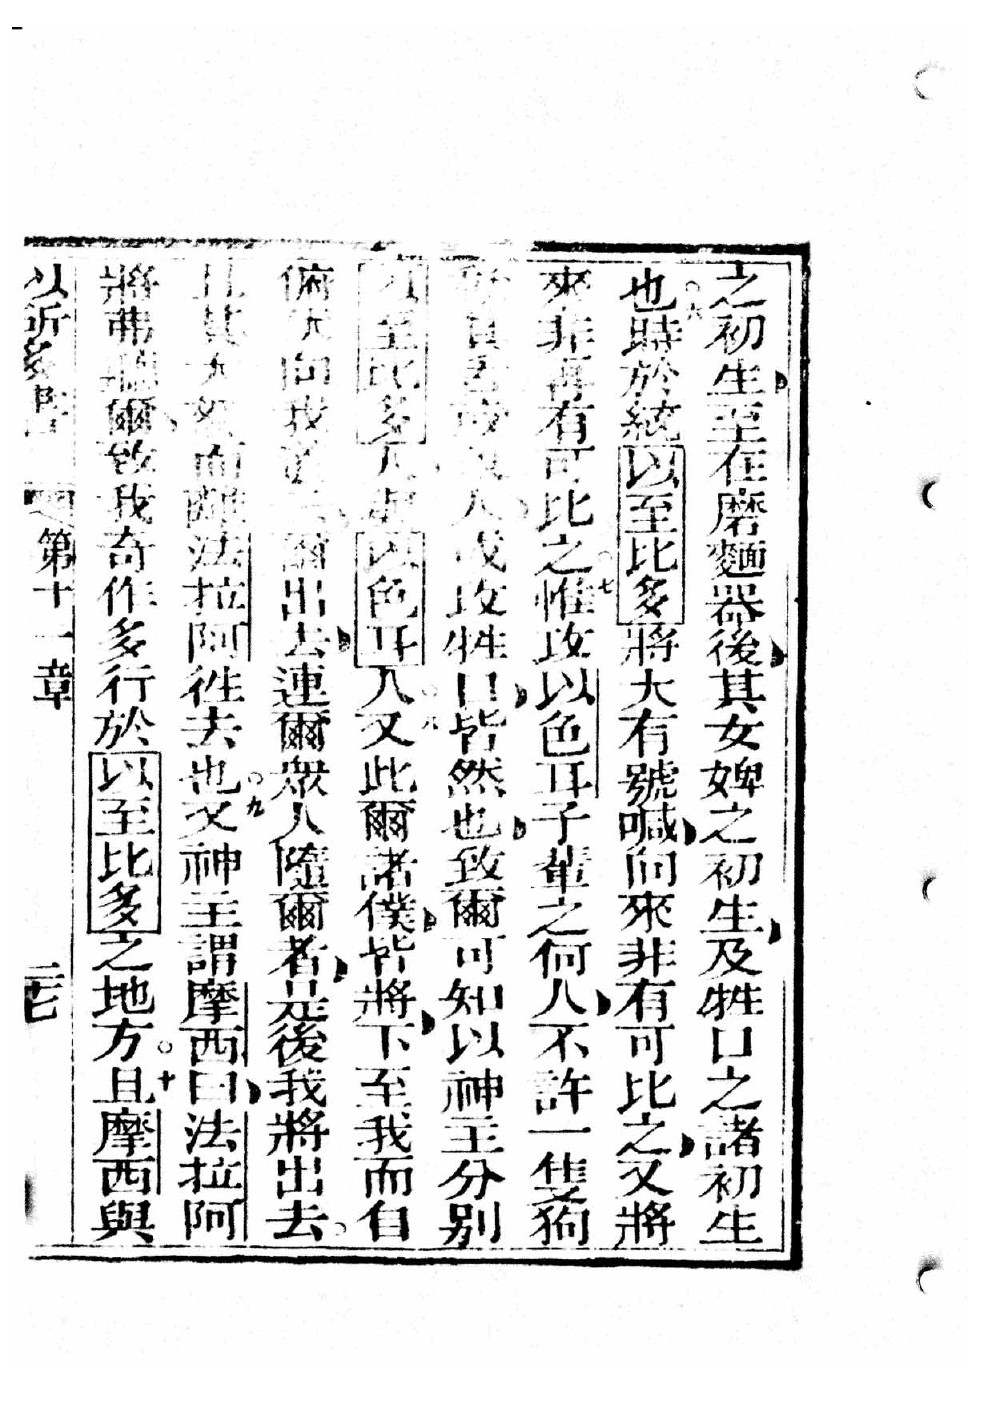 之初生至在磨麵器後其女婢之初生及牲口之諸初生
也○六時於統以至比多將大有號喊向來非有可比之又將
來非再有可比之○七惟攻以色耳子輩之何人不許一隻狗
人或攻牲口皆然也致爾可知以神主分別
以至比多人與以色耳人○八又此爾諸僕皆將下至我而自
俯伏向我 爾出去連爾衆人隨爾者是後我將出去○
且其大怒而離法拉阿徃去也○九又神主謂摩西曰法拉阿
將弗聽爾致我奇作多行於以至比多之地方○十且摩西與
以所多書 第十一章 二十七